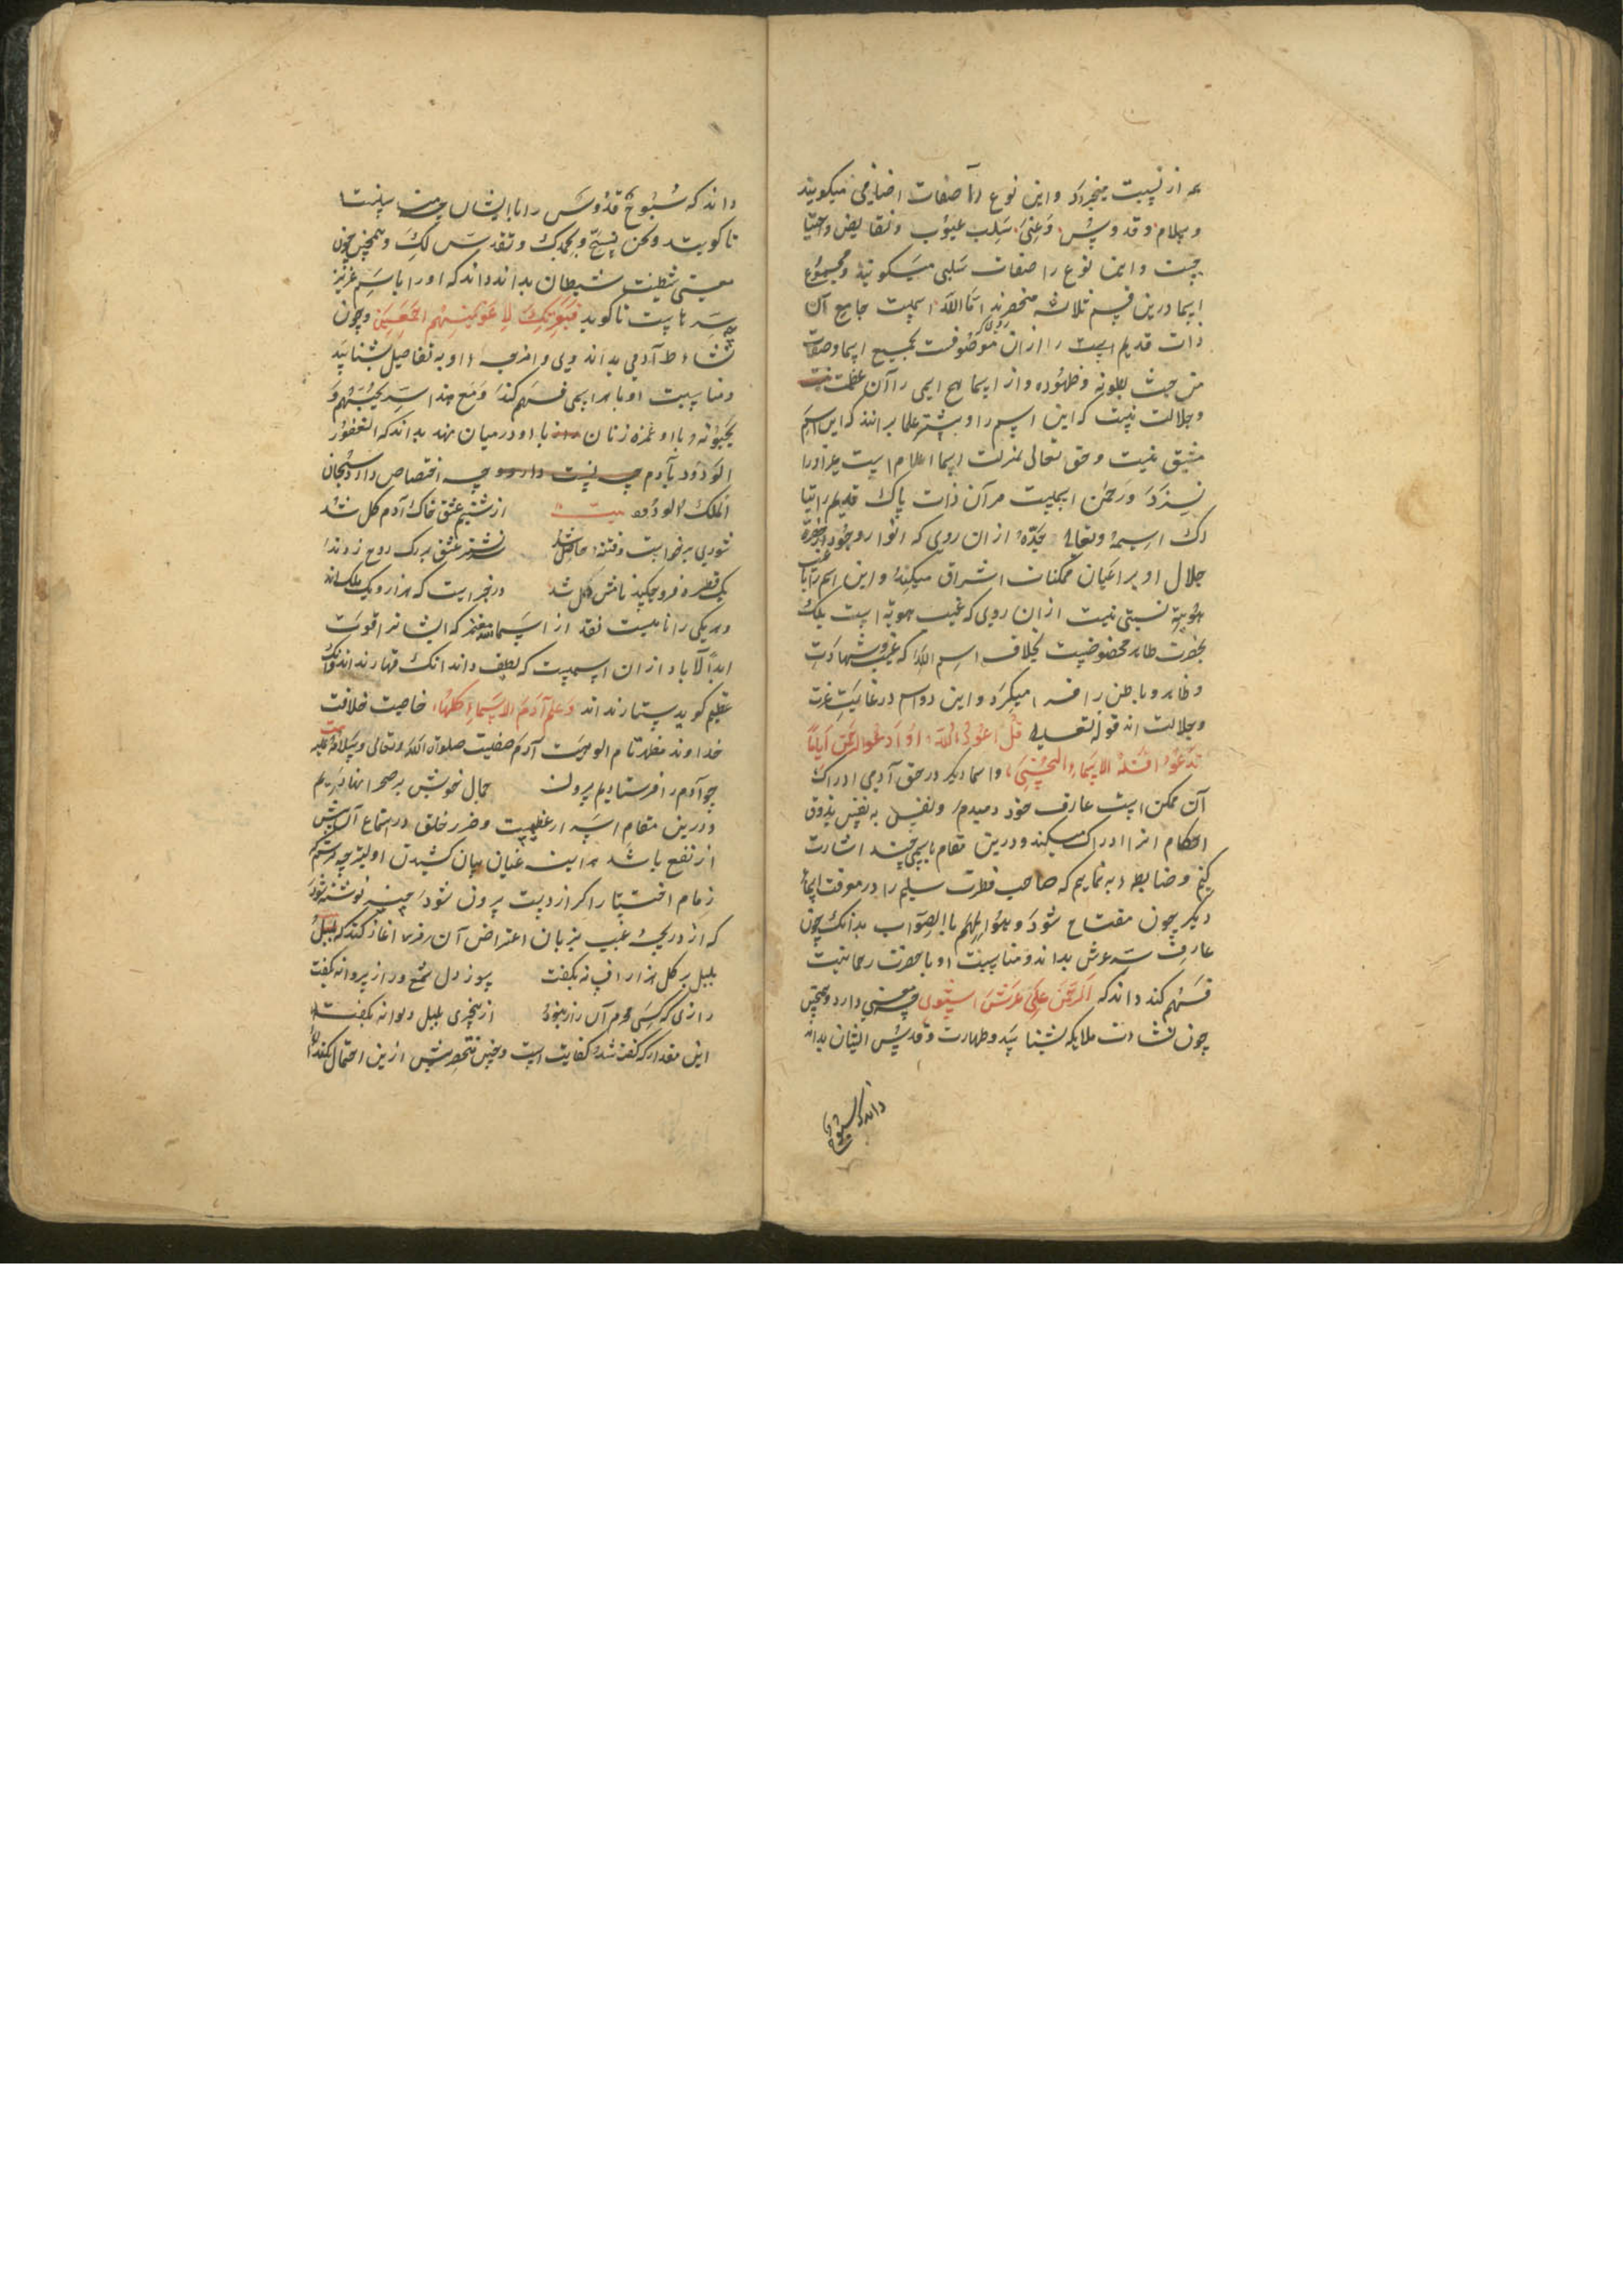 از نسبت میخیزد و این نوع را صفات اضافی میکویند
و سلام و قدوس و غنی سلب عیوب و نقایص و احتیا
جست و این نوع را صفات سلبی میکویند و مجموع
اسما درین قسم ثلاثه منحصرند اما الله اسمیست جامع آن
ذات قدیم است را از آن روی که موصوفست بجمیع اسما و صفات
من حیث بطونه و ظهوره و از اسما هیچ اسمی را آن عظمت
و جلالت نیست که این اسم را و بیشتر علما برانند که این اسم
مشتق نیست و حق تعالی بمنزلت اسما اعلام است غیر او را
نسزد و رحمن اسمیست مر آن ذات پاک قدیم را
اسمه و تعالی جده از آن روی که انوار وجود از حضرت
جلال او بر اعیان ممکنات اشراق میکند و این اسم را با غیب
هویة نسبتی نیست از آن روی که غیب هویة است بلک
بحضرت ظاهر مخصوصست بخلاف اسم الله که غیب و شهادت
و ظاهر و باطن را فرا میکیرد و این دو اسم در غایت عزت
و جلالت اند قوله تعالی قل ادعوا الله او ادعوا الرحمن ایاما
تدعوا فله الاسماء الحسنی و اسما دیکر در حق آدمی ادراک
آن ممکن است عارف خود دمبدم و نفس به نفس بذوق
احکام آنرا ادراک میکند و درین مقام باسمی چند اشارت
کنیم و ضابطه بنماییم که صاحب فطرت سلیم را در معرفت اسما
دیکر چون مفتاح شود و هو الملهم بالصواب بدانک چون
عارف سر عرش بداند و مناسبت او با حضرت رحمانیت
فهم کند داند که الرحمن علی عرش استوی چه معنی دارد و همچنین
چون نشات ملایکه بشناسد و طهارت و قدس ایشان بداند
داند که سبوح
داند که سبوح قدوس را با ایشان چه مناسبتست
تا کویند و نحن نسبح بحمدک و نقدس لک و همچنین چون
معنی شیطنت شیطان بداند داند که او را با اسم عزیز
چه سریست تا کوید فبعزتک لاغوینهم اجمعین و چون
نشاط آدمی بداند وی را و او به تفاصیل بشناسد
و مناسبت او با هر اسمی فهم کند و مع هذا سر یحبهم و
یحبونه با او غمزه زنان با او در میان نهد بداند که الغفور
الودود بآدم چه اختصاص دارد سبحان
الملک الودود بیت
از شبنم عشق خاک آدم کل شد
شوری برخواست و فتنه حاصل شد سر نشتر عشق بر رک روح زدند
یک قطره فرو چکید نامش دل شد و در خبر است که هزار و یک ملک اند
و هر یکی را تا بیست نقد از اسماء الله که ایشانرا قوت
ابدا لآباد از آن اسمست که لطیف داند انک قهارند اند و انک
عظیم کوید ستارند اند و علم آدم الاسماء کلها خاصیت خلافت
خداوند مظهر تام الوهیت آدم صفیست صلوات الله تعالی و سلامه علیه بیت
چو آدم را فرستادیم بیرون جمال خویش بر صحرا نهادیم
و درین مقام اسرار عظیمیت و ضرر خلق در استماع آن بیش
از نفع باشد هر آینه عنان بیان کشیدن اولیتر چه
زمام اختیار اکر از دست برون شود چیزی نوشته شود
که از دریچه غیب بزبان اعتراض آن رمز آغاز کند که
بلبل بر کل هزار افسانه بکفت سوز دل شمع و راز پروانه بکفت
رازی که کسی محرم آن راز نبود از بیخبری بلبل دیوانه بکفت
این مقدار که کفته شد کفایت است و چنین مختصر بیش ازین احتمال نکند